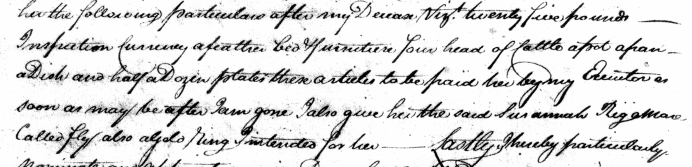 her the following particulars after my Decease, Vizt. twenty five pounds —
Inspection Currency a feather bed & furniture four head of Cattle a pot a pan —
a Dish and half a Dozen plates these articles to be paid her by my Executor as
soon as may be after I am gone I also give her the said Susannah
Called fly also a gold Ring I intended for her — Lastly I hereby particularly